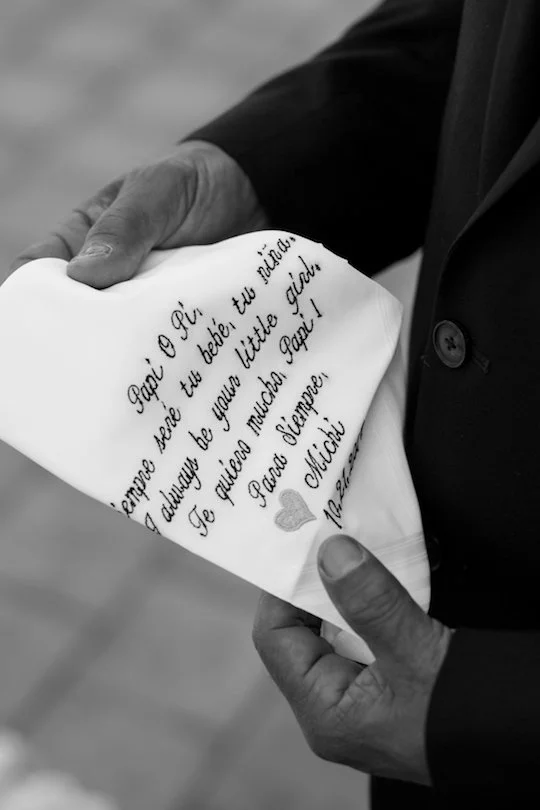 Papi O Pi,
iempre seré tu bebé, tu niña.
I always be your little girl,
Te quiero mucho, Papi!
Para Siempre,
Michi
10.26.